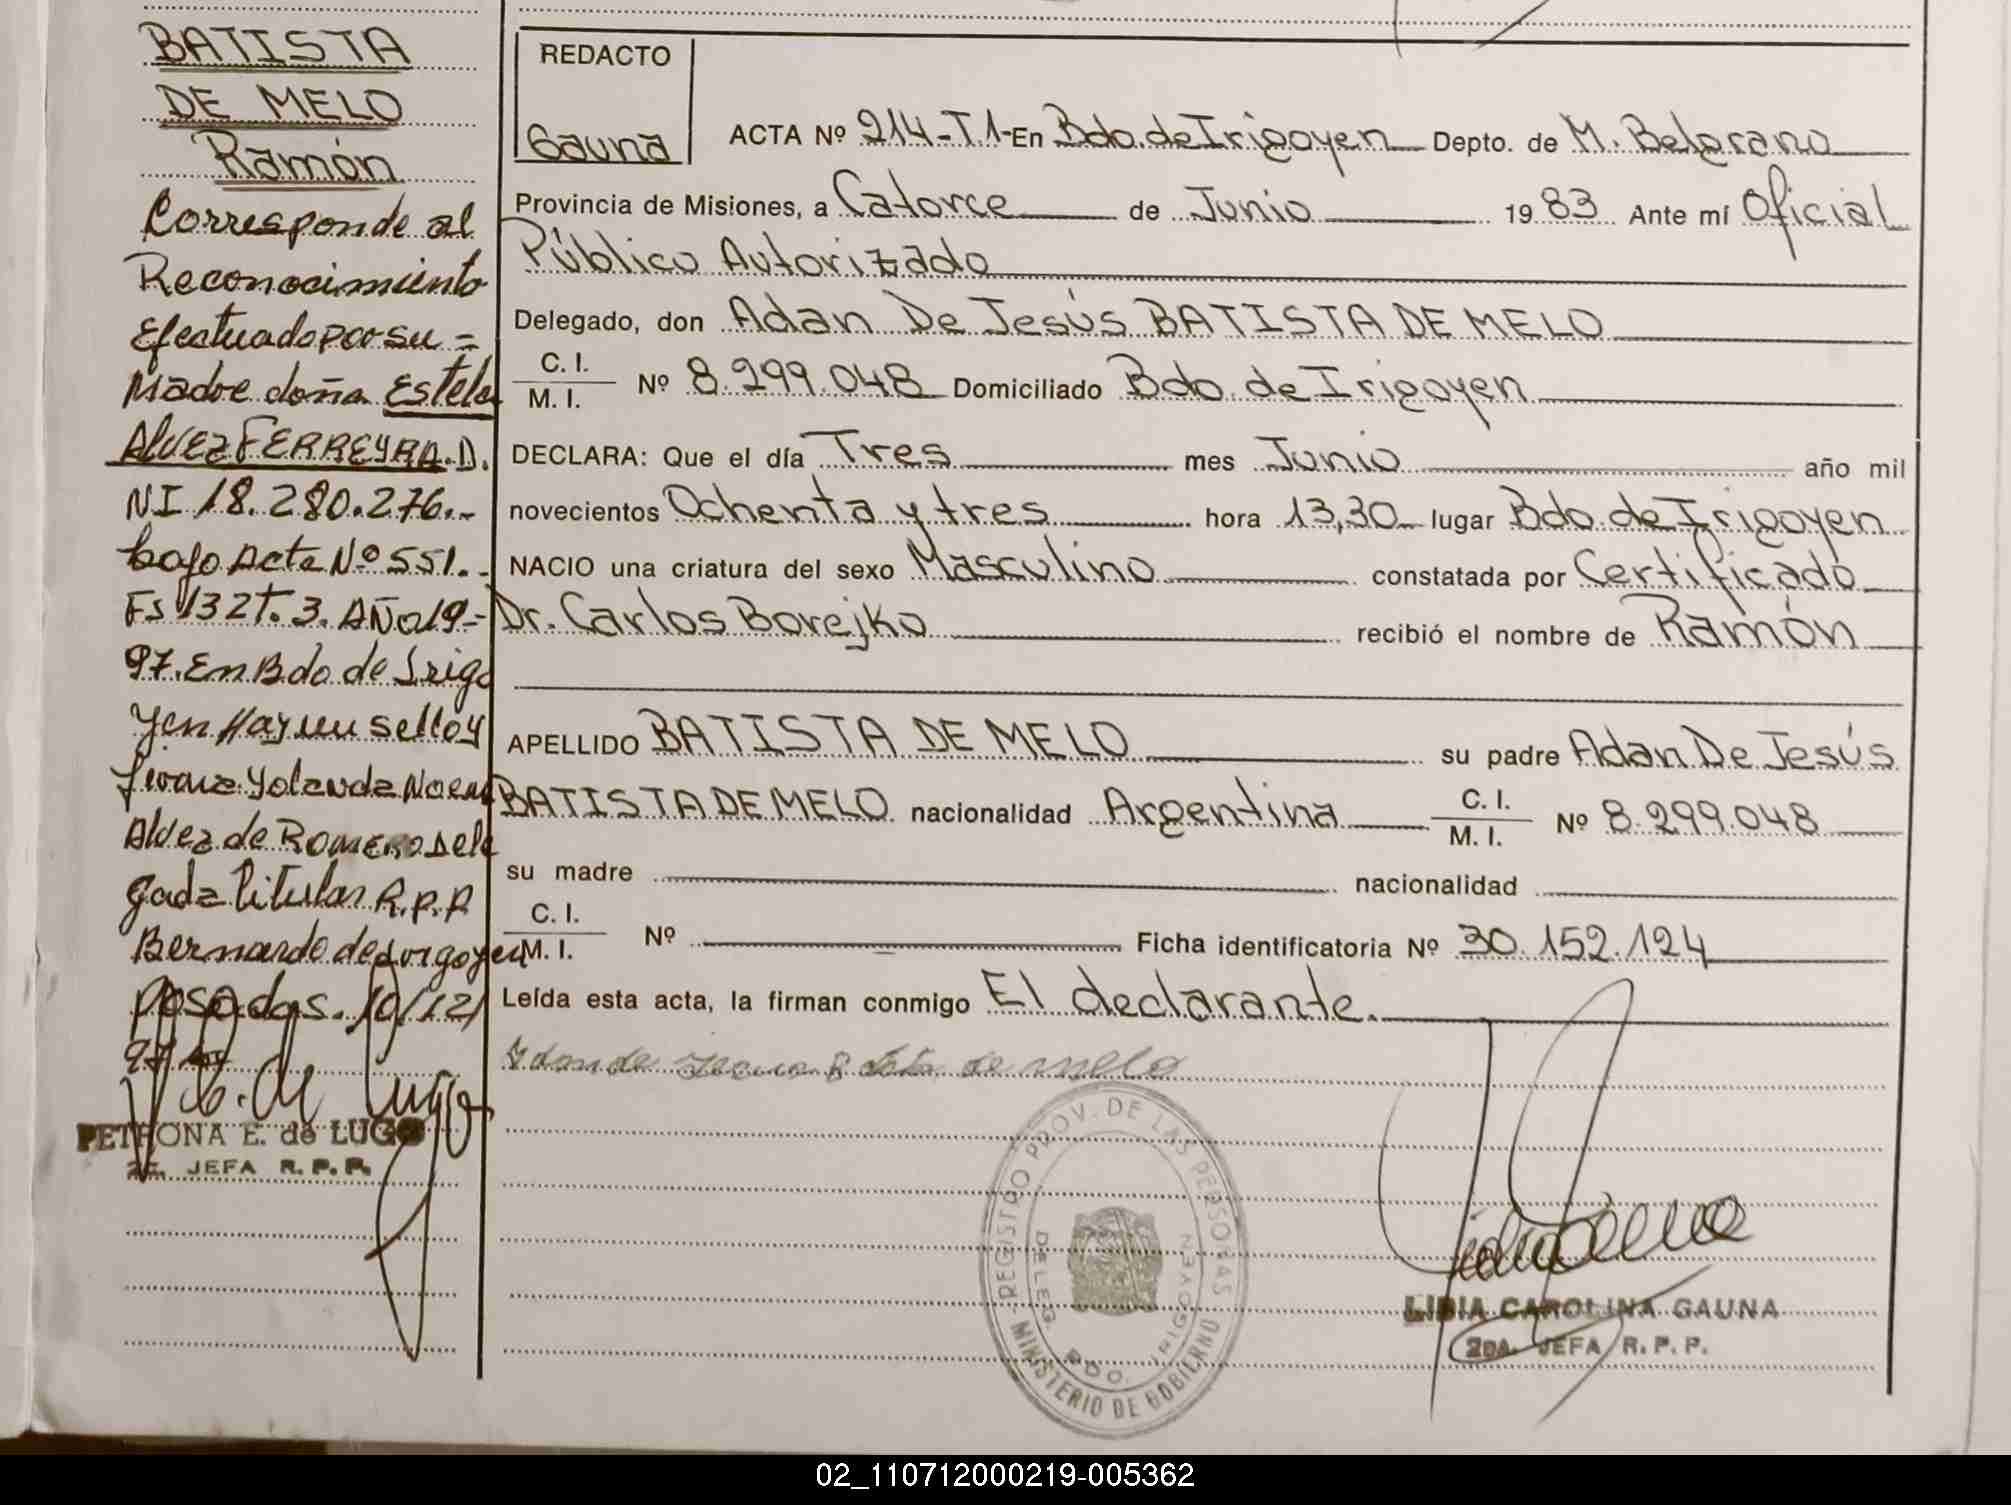 BATISTA
DE MELO
Ramón
Corresponde al
Reconocimiento
Efectuado por su =
Madre doña Estela
Alvez FERREYRA. D.
NI 18.280.276.-
bajo Acta Nº 551.-
Fs 132 T. 3. AÑo 19-
97. En Bdo de Irigo
yen Hay un sello y
firma Yolanda Noemi
Alvez de Romero Dele
gada Titular R.P.P.
Bernardo de Irigoyen
Posadas. 10/12/
97
PETRONA E. de LUGO
JEFA R. P. P.
REDACTO
Gauna
ACTA Nº 214-T.1- En Bdo. de Irigoyen Depto. de M. Belgrano
Provincia de Misiones, a Catorce de Junio 19 83 Ante mí Oficial
Público Autorizado
Delegado, don Adan De Jesús BATISTA DE MELO
C. I.
M. I. Nº 8.299.048 Domiciliado Bdo. de Irigoyen
DECLARA: Que el día Tres mes Junio año mil
novecientos Ochenta y tres hora 13,30 lugar Bdo. de Irigoyen
NACIO una criatura del sexo Masculino constatada por Certificado
Dr. Carlos Borejko recibió el nombre de Ramón
APELLIDO BATISTA DE MELO su padre Adan De Jesús
BATISTA DE MELO nacionalidad Argentina C. I. M. I. Nº 8.299.048
su madre nacionalidad
C. I.
M. I. Nº Ficha identificatoria Nº 30.152.124
Leída esta acta, la firman conmigo El declarante.
de melo
REGISTRO PROV. DE LAS PERSONAS
DELEG. BDO. IRIGOYEN
MINISTERIO DE GOBIERNO
LIDIA CAROLINA GAUNA
2DA. JEFA R. P. P.
02_110712000219-005362